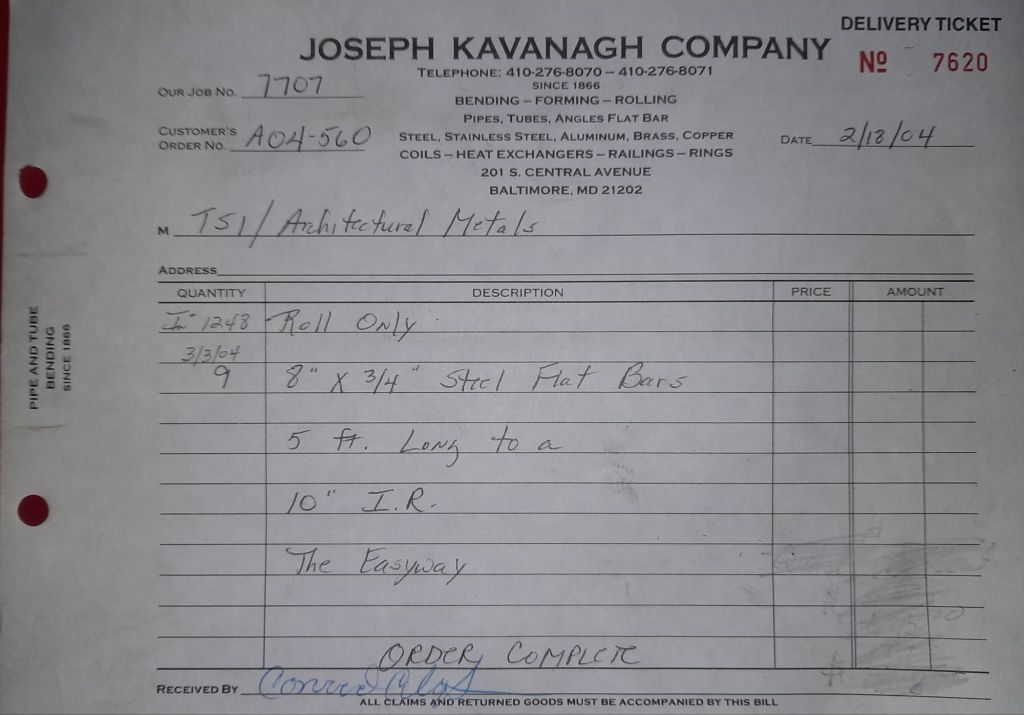 DELIVERY TICKET
JOSEPH KAVANAGH COMPANY
Nº 7620
TELEPHONE: 410-276-8070 – 410-276-8071
SINCE 1866
OUR JOB NO. 7707
BENDING – FORMING – ROLLING
PIPES, TUBES, ANGLES FLAT BAR
CUSTOMER'S
ORDER NO. A04-560
STEEL, STAINLESS STEEL, ALUMINUM, BRASS, COPPER
DATE 2/18/04
COILS – HEAT EXCHANGERS – RAILINGS – RINGS
201 S. CENTRAL AVENUE
BALTIMORE, MD 21202
M TSI/Architectural Metals
ADDRESS
QUANTITY DESCRIPTION PRICE AMOUNT
1248 Roll Only
3/3/04
9 8" X 3/4" Steel Flat Bars
5 ft. Long to a
10" I.R.
The Easyway
ORDER COMPLETE
RECEIVED BY
ALL CLAIMS AND RETURNED GOODS MUST BE ACCOMPANIED BY THIS BILL
PIPE AND TUBE
BENDING
SINCE 1866